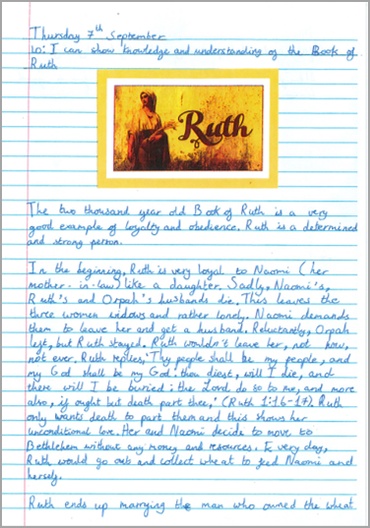 Thursday 7th September
LO: I can show knowledge and understanding of the Book of
Ruth
Ruth
The two thousand year old Book of Ruth is a very
good example of loyalty and obedience. Ruth is a determined
and strong person.
In the beginning, Ruth is very loyal to Naomi (her
mother-in-law) like a daughter. Sadly, Naomi's,
Ruth's and Orpah's husbands die. This leaves the
three women widows and rather lonely. Naomi demands
them to leave her and get a husband. Reluctantly, Orpah
left, but Ruth stayed. Ruth wouldn't leave her, not now,
not ever. Ruth replies, 'Thy people shall be my people, and
my God shall be my God: thou diest, will I die, and
there will I be buried: the Lord do so to me, and more
also, if ought but death part thee,' (Ruth 1:16-17). Ruth
only wants death to part them and this shows her
unconditional love. Her and Naomi decide to move to
Bethlehem without any money and resources. Every day,
Ruth would go out and collect wheat to feed Naomi and
herself.
Ruth ends up marrying the man who owned the wheat